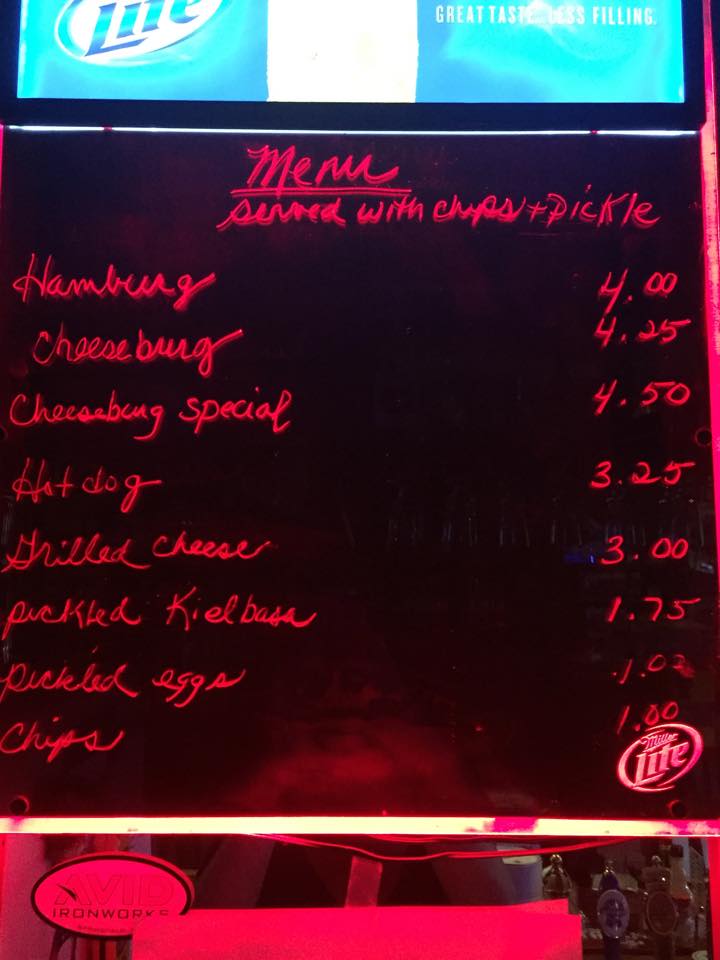 Lite
GREAT TASTE. LESS FILLING.
Menu
served with chips + pickle
Hamburg 4.00
Cheeseburg 4.25
Cheeseburg special 4.50
Hot dog 3.25
Grilled cheese 3.00
pickled Kielbasa 1.75
pickled eggs
Chips 1.00
Miller
Lite
AVID
IRONWORKS